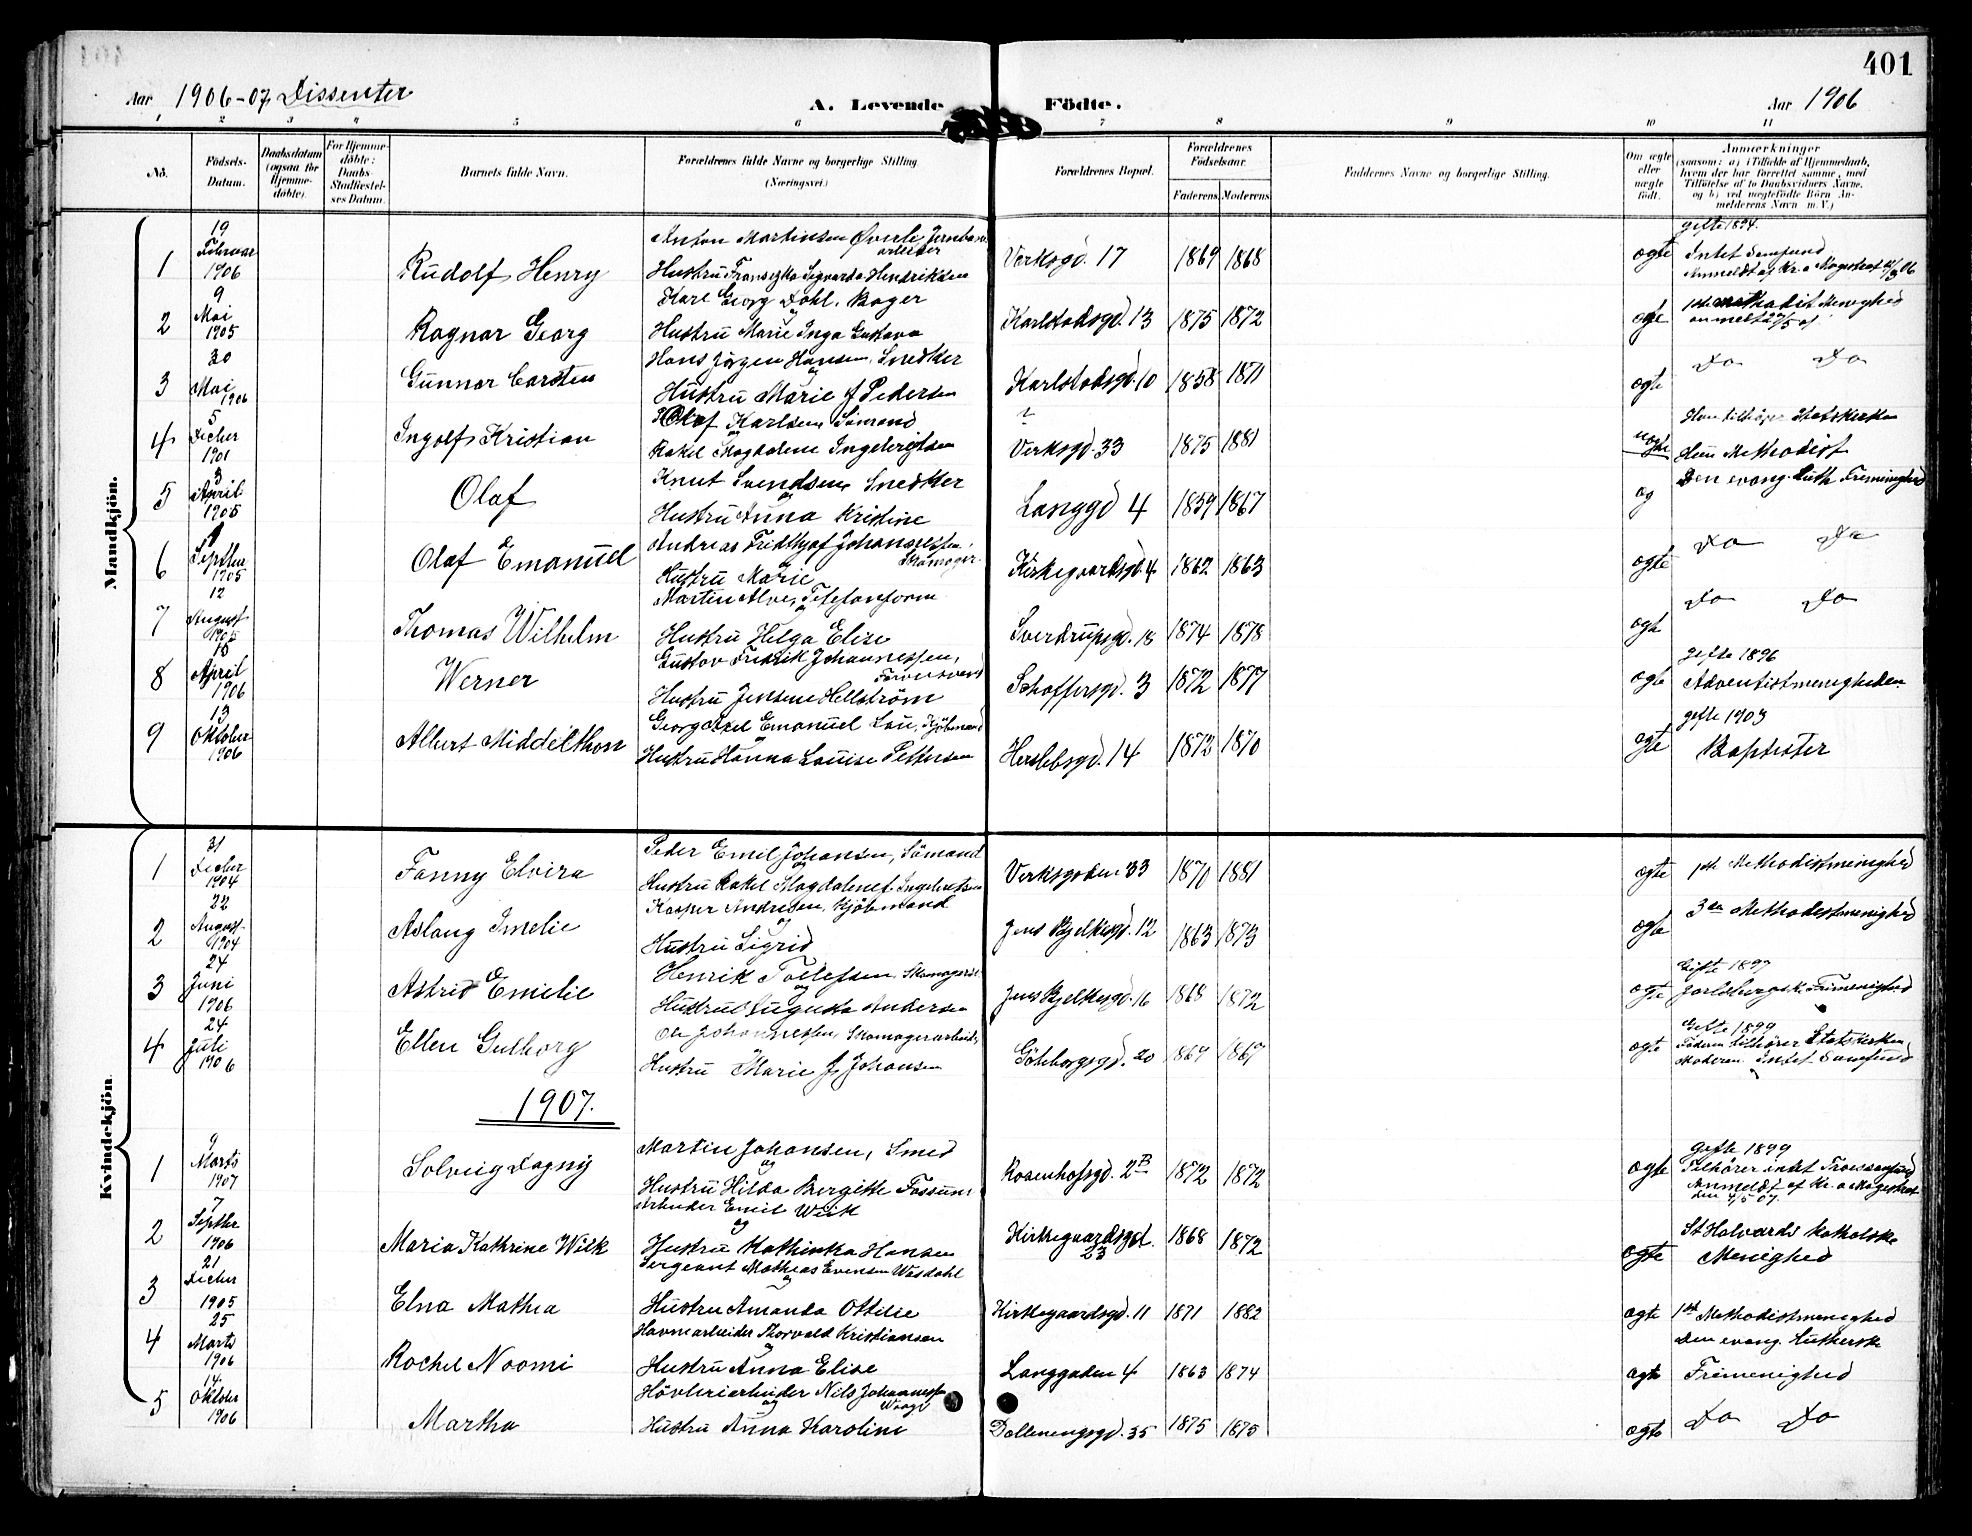 401
Aar 1906-07 Dissenter
A. Levende Födte.
Aar 1906
1 2 3 4 5 6 7 8 9 10 11
No.
Födsels-Datum.
Daabsdatum (ogsaa for Hjemme-döbte).
For Hjemme-döbte: Daabs-Stadfæstel-ses Datum.
Barnets fulde Navn.
Forældrenes fulde Navne og borgerlige Stilling. (Næringsvei.)
Forældrenes Bopæl.
Forældrenes Födselsaar.
Faderens Moderens
Faddernes Navne og borgerlige Stilling.
Om ægte eller uægte födt.
Anmærkninger
(saasom: a) i Tilfælde af Hjemmedaab,
hvem der har forrettet samme, med
Tilföielse af to Daabsvidners Navne,
og b) ved uægtefödte Börn An-
melderens Navn m. V.)
Mandkjön.
1 19 Februar 1906 Rudolf Henry Anton Martinsen Øverli Jernbanearbeider Hustru Franciska Sigvarda Hendriksen Verksgd. 17 1869 1868 ægte gifte 1894. Intet Samfund Anmeldt af Kr.a Magistrat
2 9 Mai 1905 Ragnar Georg Karl Georg Dahl, Bager og Hustru Marie Inga Gustava Karlstadsgd. 13 1875 1872 ægte 1ste Methodist Menighed
3 30 Mai 1906 Gunnar Carsten Hans Jørgen Hansen, Snedker og Hustru Marie f Pedersen Karlstadsgd. 10 1858 1871 ægte Do Do
4 5 Decber 1901 Ingolf Kristian Olaf Karlsen Sömand og Rakel Magdalene Ingebrigtsen ? Verksgd. 33 1875 1881 uægte Han tilhører Statskirken Hun Methodist
5 3 April 1905 Olaf Knut Svendsen Snedker og Hustru Anna Kristine Langgd 4 1859 1867 æg Den evang. Luth. Frimenighed
6 Septbr 1905 Olaf Emanuel Andreas Fridthjof Johannessen, Skomager og Hustru Marie Kirkegaardsgd. 4 1862 1863 ægte Do Do
7 12 August 1905 Thomas Wilhelm Martin Alve, Telefonform og Hustru Helga Elise Sverdrupsgd. 18 1874 1878 ægte Do Do
8 18 April 1906 Werner Gustav Fredrik Johannessen, Farversvend Hustru Jensine Hellström Schaffersgd. 3 1872 1877 ægte gifte 1896 Adventistmenigheden
9 13 Oktober 1906 Albert Middelthon Georg Axel Emanuel Lau, Kjöbmand og Hustru Hanna Louise Pettersen Herslebsgd. 14 1872 1870 ægte gifte 1903 Baptister
Kvindekjön.
1 31 Decber 1904 Fanny Elvira Peder Emil Johansen, Sömand og Hustru Rakel Magdalene f. Ingebretsen Verksgaden 33 1870 1881 ægte 1ste Methodistmenighed
2 22 August 1904 Aslaug Imelie Kasper Andresen, Kjöbmand og Hustru Sigrid Jens Bjelkesgd. 12 1863 1873 ægte 3die Methodistmenighed
3 24 Juni 1906 Astrid Emilie Henrik Tollefsen, Skomagersv. og Hustru Augusta Andersen Jens Bjelkesgd. 16 1868 1872 ægte Gifte 1897 Jarlsbergsk. Frimenighed
4 24 Juli 1906 Ellen Gulborg Ole Johannessen, Skomagerarbeid. Hustru Marie f. Johansen Göteborgsgd. 20 1867 1867 ægte Gifte 1899 Faderen tilhører Statskirken, Moderen Intet Samfund
1907.
1 9 Marts 1907 Solveig Dagny Martin Johansen, Smed og Hustru Hilda Bergitte Fossum Rosenhofsgd. 2B 1872 1872 ægte Gifte 1899 Tilhører intet Troessamfund Anmeldt af Kr.a Magistrat den 4/5 07.
2 7 Septber 1906 Maria Kathrine Wiik Arbeider Emil Wiik og Hustru Kathinka Hansen Kirkegaardsgd. 23 1868 1872 ægte St Halvards katholske Menighed
3 21 Decber 1905 Elna Mathea Sergeant Mathias Evensen Wasdahl og Hustru Amanda Ottilie Kirkegaardsgd. 11 1871 1882 ægte 1st Methodistmenighed
4 25 Marts 1906 Rachel Noomi Havnearbeider Thorvald Kristiansen og Hustru Anna Elise Langgaden 4 1863 1874 ægte Den evang. Lutherske Frimenighed
5 14. Oktober 1906 Martha Hövleriarbeider Nils Johannessen Waage og Hustru Anna Karoline Dallenengsgd. 35 1875 1875 ægte Do Do